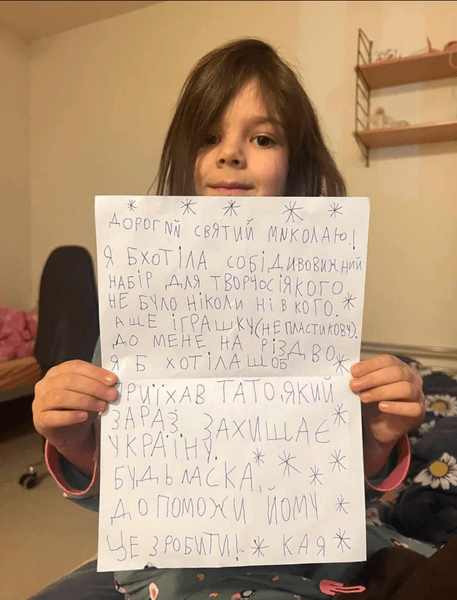 ДОРОГИЙ СВЯТИЙ МИКОЛАЮ!
Я Б ХОТІЛА СОБІ ДИВОВИЖНИЙ
НАБІР ДЛЯ ТВОРЧОСІ ЯКОГО
НЕ БУЛО НІКОЛИ НІ В КОГО.
А ЩЕ ІГРАШКУ (НЕ ПЛАСТИКОВУ).
ДО МЕНЕ НА РІЗДВО
Я Б ХОТІЛА ЩОБ
ПРИЇХАВ ТАТО, ЯКИЙ
ЗАРАЗ ЗАХИЩАЄ
УКРАЇНУ.
БУДЬ ЛАСКА,
ДОПОМОЖИ ЙОМУ
ЦЕ ЗРОБИТИ! КАЯ